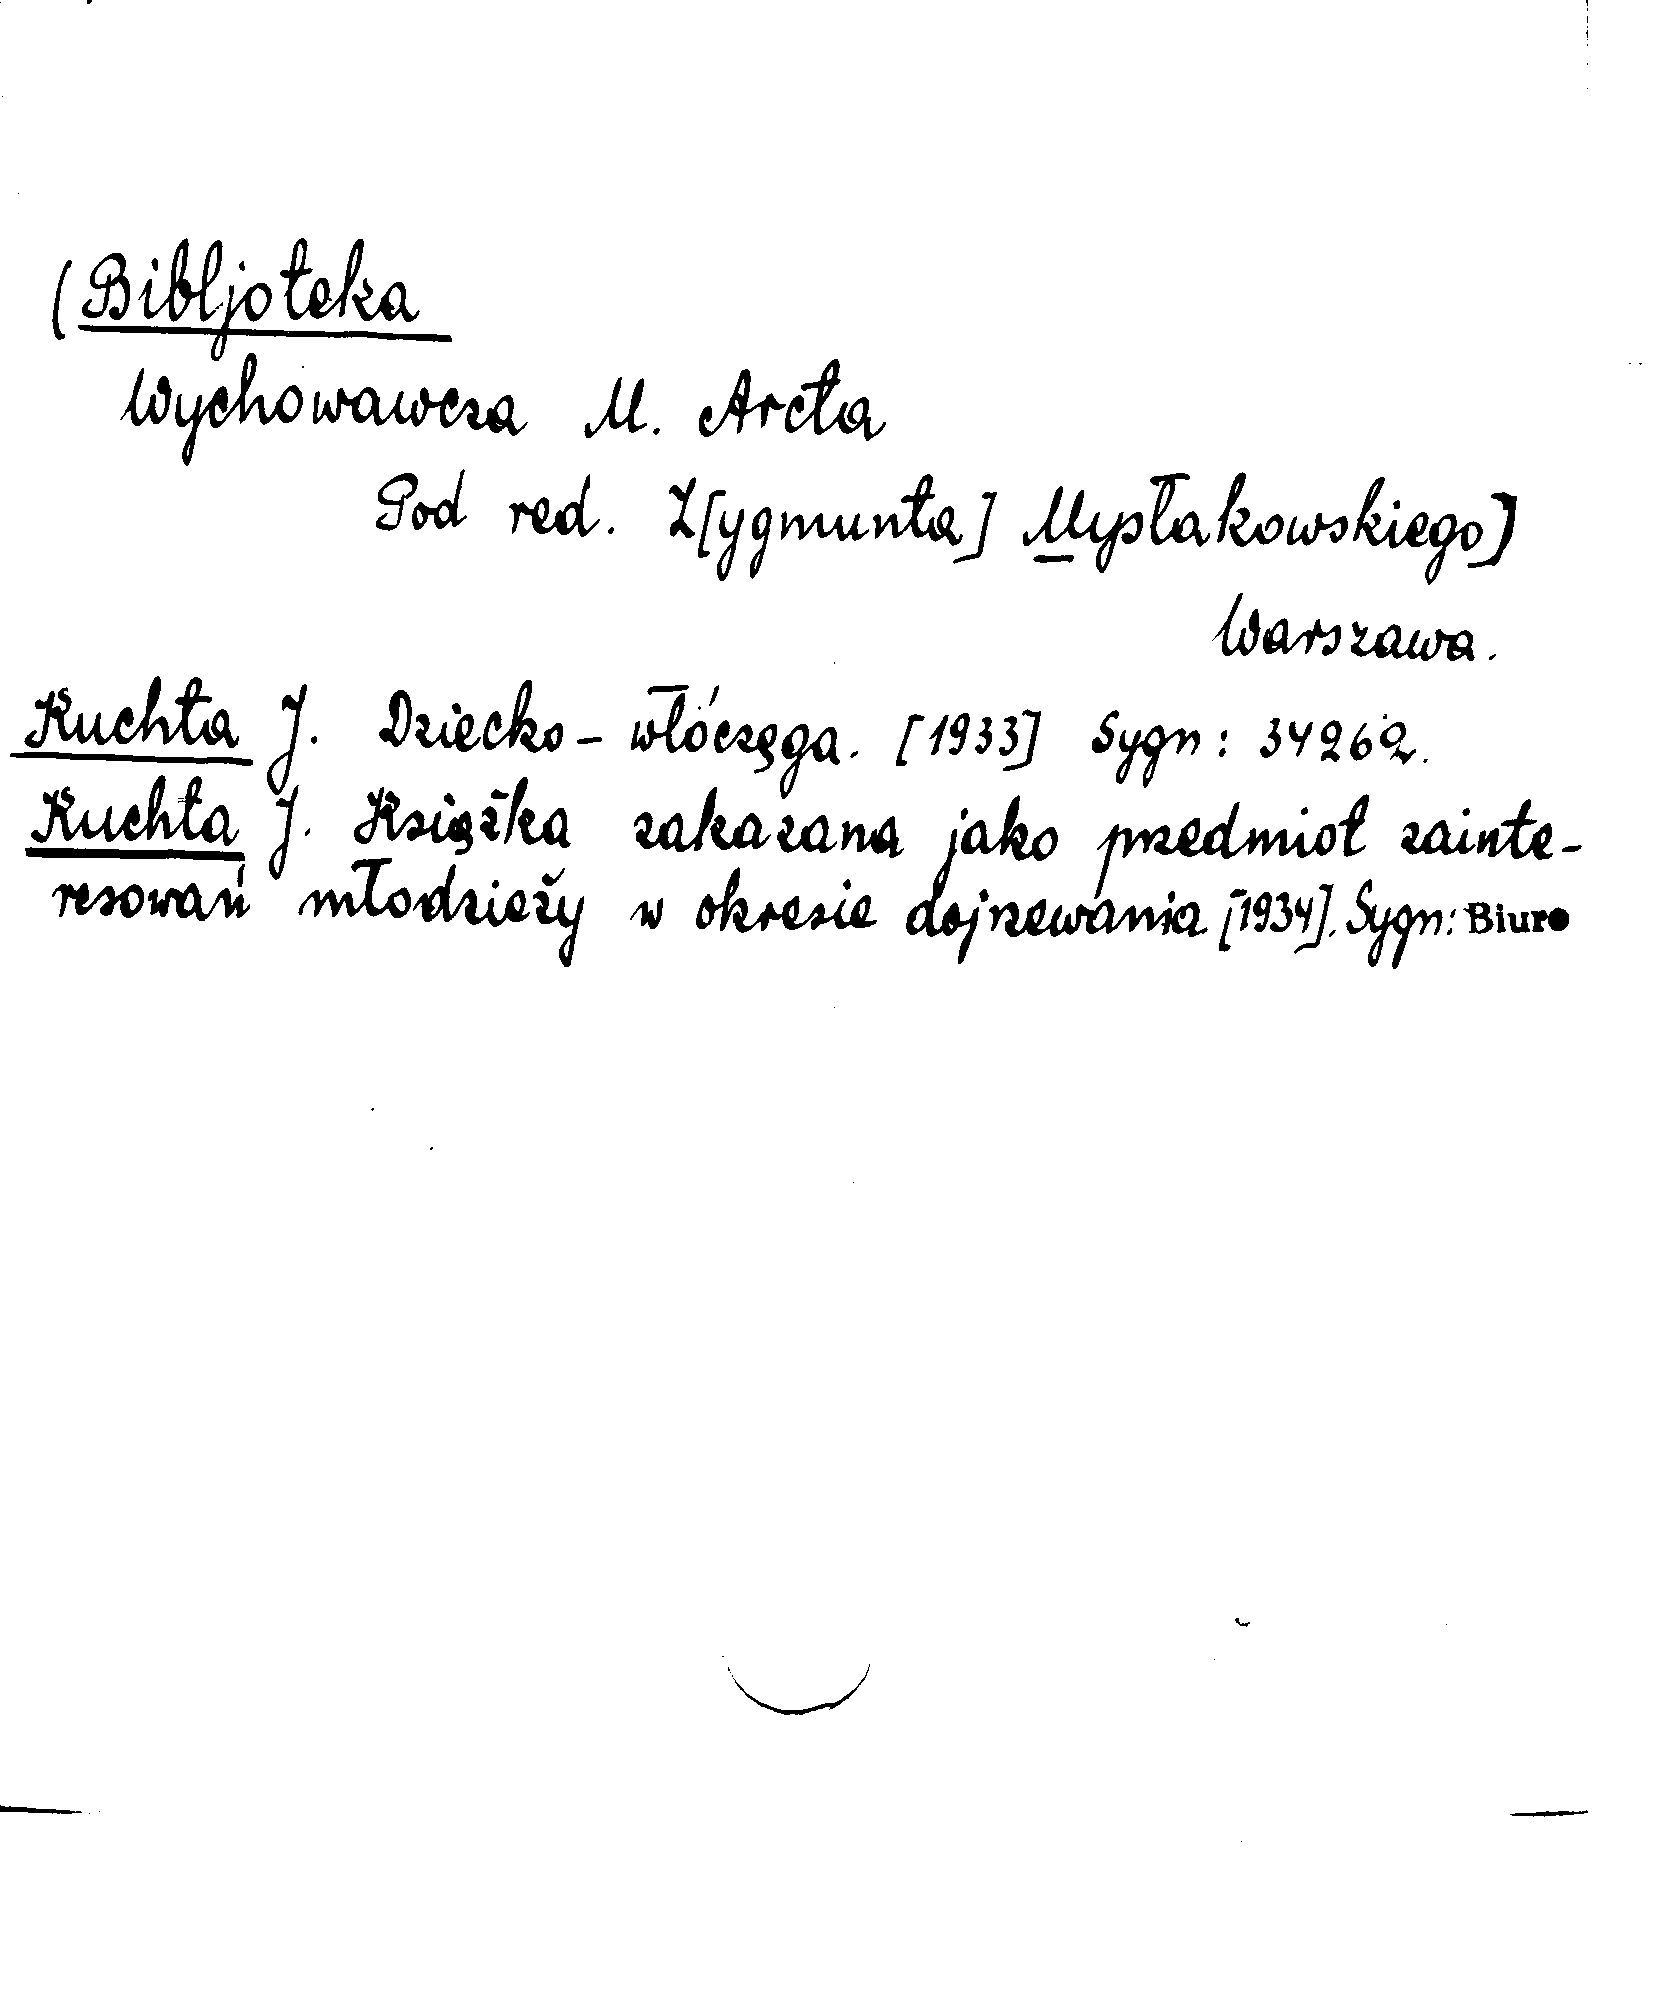 (Bibljoteka
Wychowawcza M. Arcta
Pod red. Z[ygmunta] Mysłakowskiego)
Warszawa.
Kuchta J. Dziecko - włóczęga. [1933] Sygn: 34262.
Kuchta J. Książka zakazana jako przedmiot zainte-
resowań młodzieży w okresie dojrzewania [1934]. Sygn: Biuro